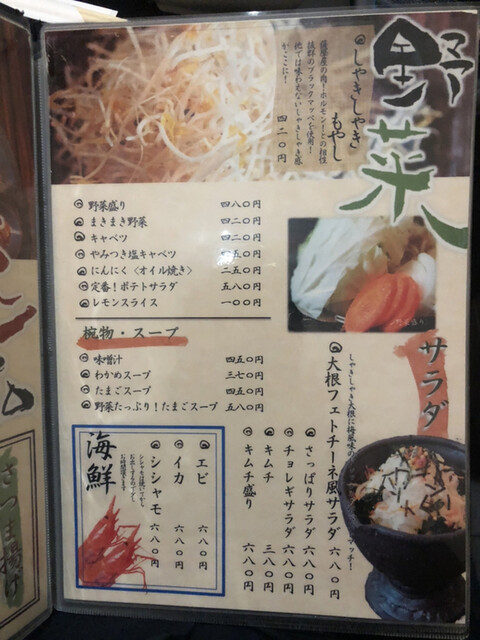 野菜
しゃきしゃき
もやし
薩摩屋の肉・ホルモン!との相性
抜群のブラックマッペを使用!
他では味わえないしゃきしゃき感
がここに!
四二〇円
野菜盛り 四八〇円
まきまき野菜 四二〇円
キャベツ 四二〇円
やみつき塩キャベツ 五〇円
にんにく〈オイル焼き〉 二五〇円
定番!ポテトサラダ 五八〇円
レモンスライス 一〇〇円
野菜盛り
椀物・スープ
味噌汁 四五〇円
わかめスープ 三七〇円
たまごスープ 四五〇円
野菜たっぷり!たまごスープ 五八〇円
サラダ
しゃきしゃき大根に梅風味の
マッチ!
大根フェトチーネ風サラダ 六八〇円
さっぱりサラダ 六八〇円
チョレギサラダ 六八〇円
キムチ 三八〇円
キムチ盛り 六八〇円
海鮮
エビ 六八〇円
イカ 六八〇円
シシャモ 六八〇円
シシャモは焼いてから
お出しするので少し
お時間頂きます
さつま揚げ